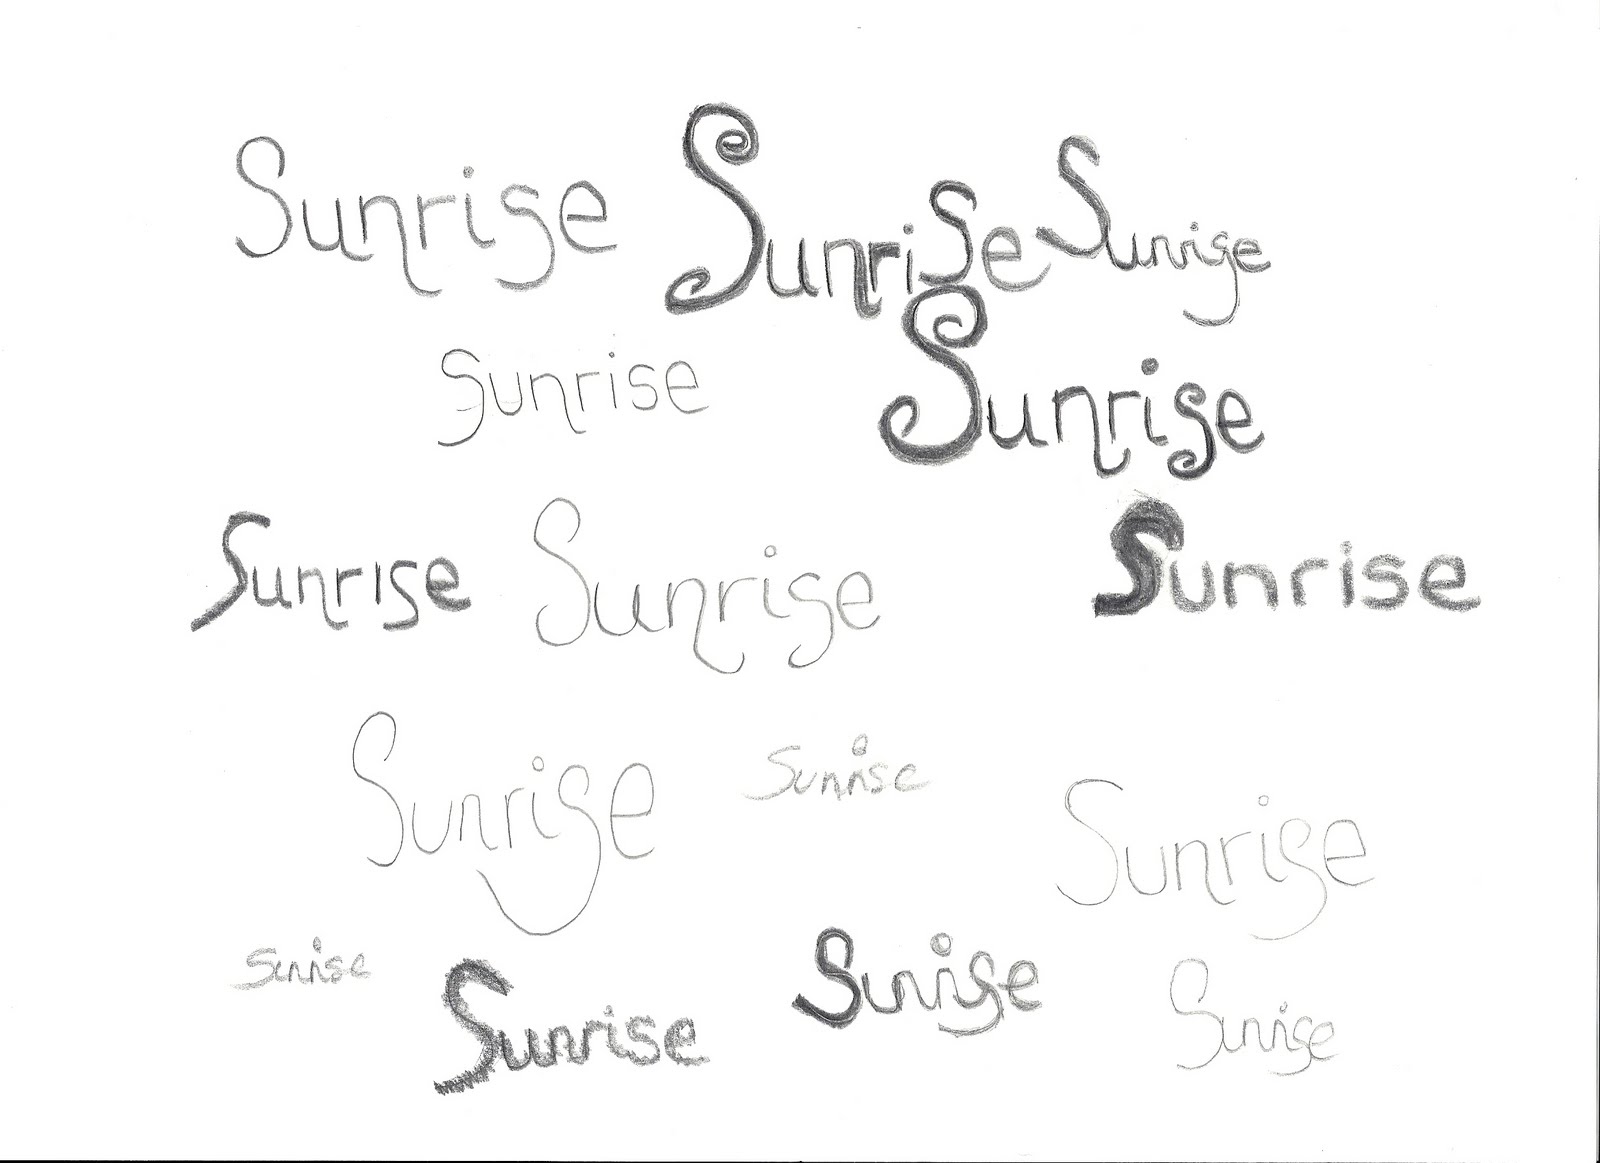 Sunrise Sunrise Sunrise
Sunrise Sunrise
Sunrise Sunrise Sunrise
Sunrise Sunrise Sunrise
Sunrise Sunrise Sunrise Sunrise